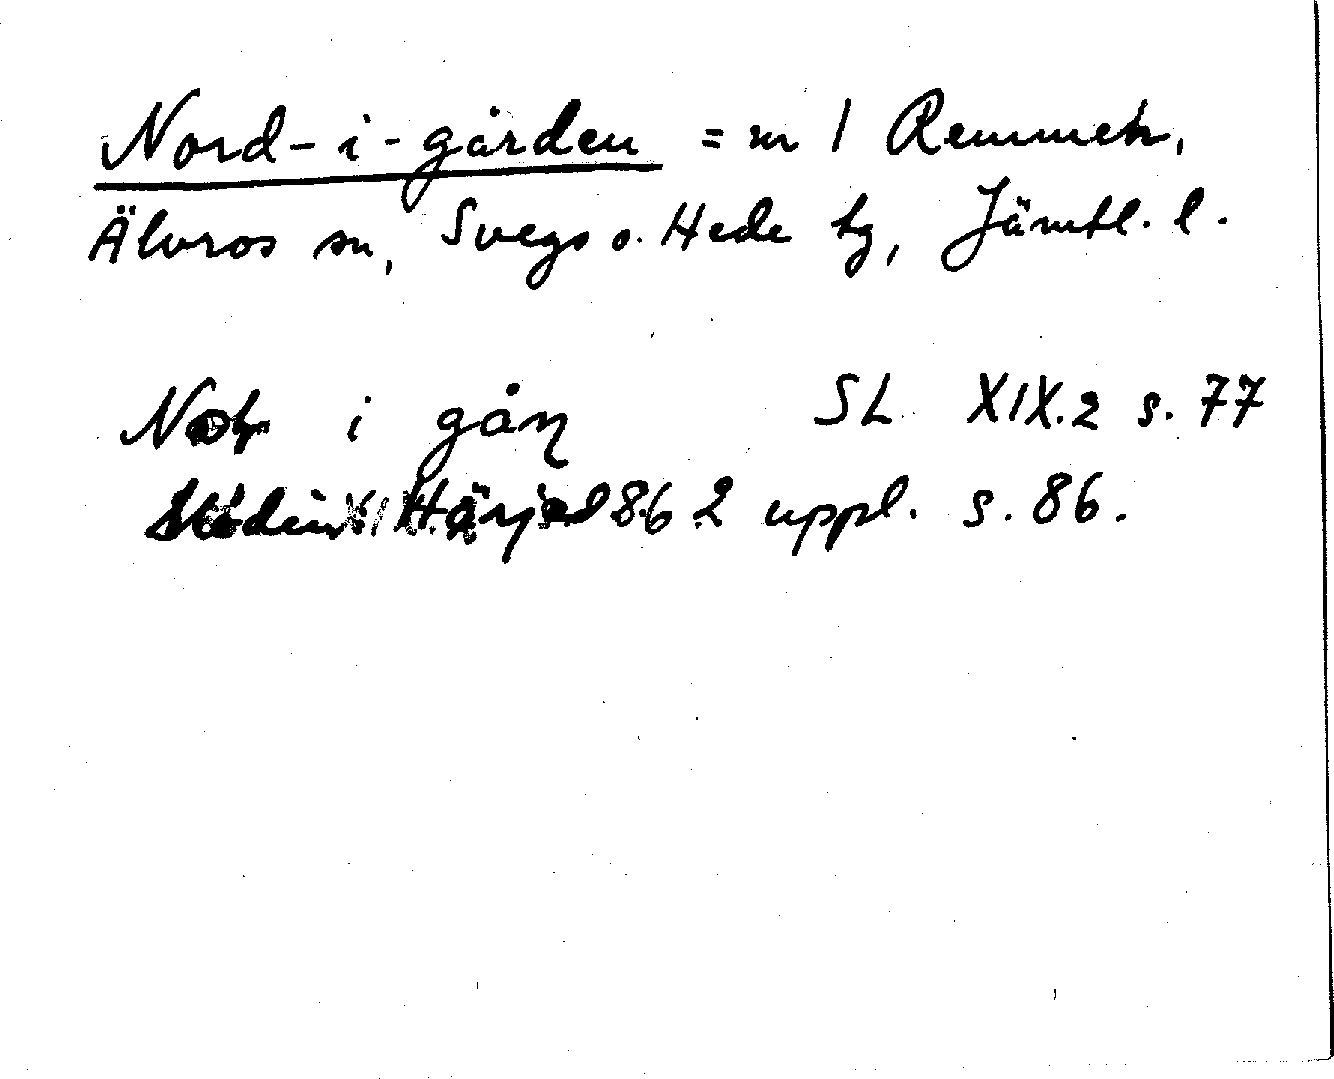 Nord-i-gården = nr 1 Remmen,
Älvros sn, Svegs o. Hede tg, Jämtl. l.
i gåɳ SL XIX.2 s. 77
Härjed 2 uppl. s. 86.